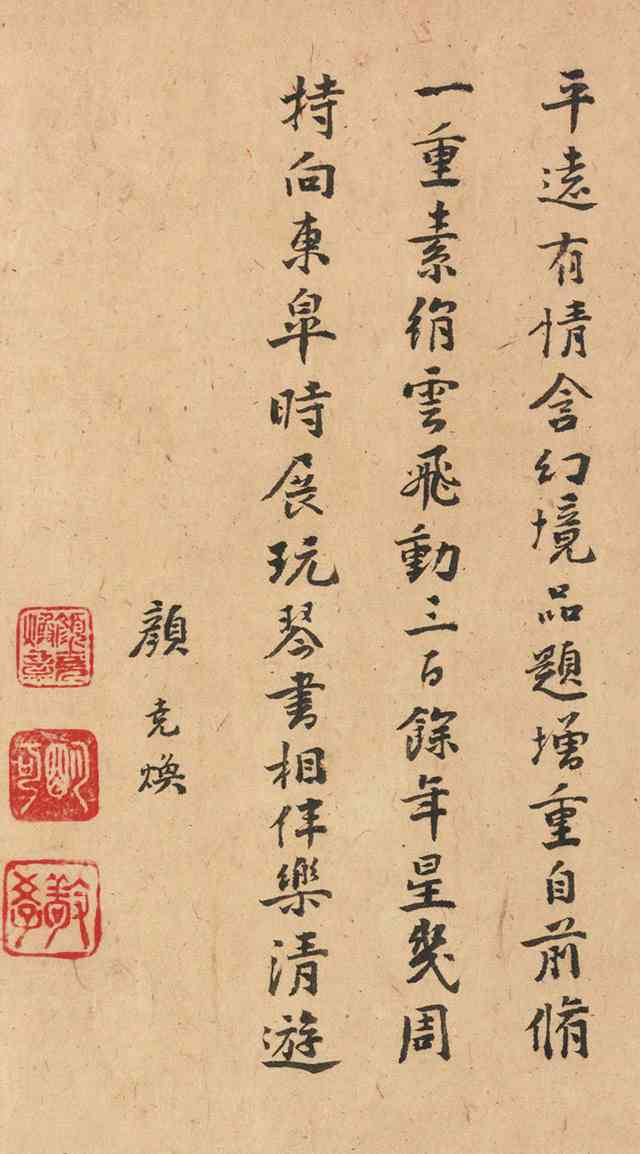 平遠有情含幻境品題增重自前脩
一重素絹雲飛動三百餘年星幾周
持向東皐時展玩琴書相伴樂清遊
顏堯煥